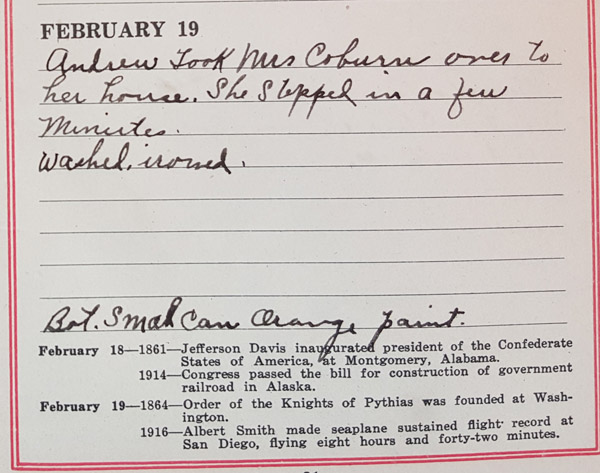 FEBRUARY 19
Andrew Took Mrs Coburn over to
her house. She Stepped in a few
Minutes.
Washed, ironed.
Bot. Small Can Orange paint.
February 18—1861—Jefferson Davis inaugurated president of the Confederate
States of America, at Montgomery, Alabama.
1914—Congress passed the bill for construction of government
railroad in Alaska.
February 19—1864—Order of the Knights of Pythias was founded at Wash-
ington.
1916—Albert Smith made seaplane sustained flight record at
San Diego, flying eight hours and forty-two minutes.